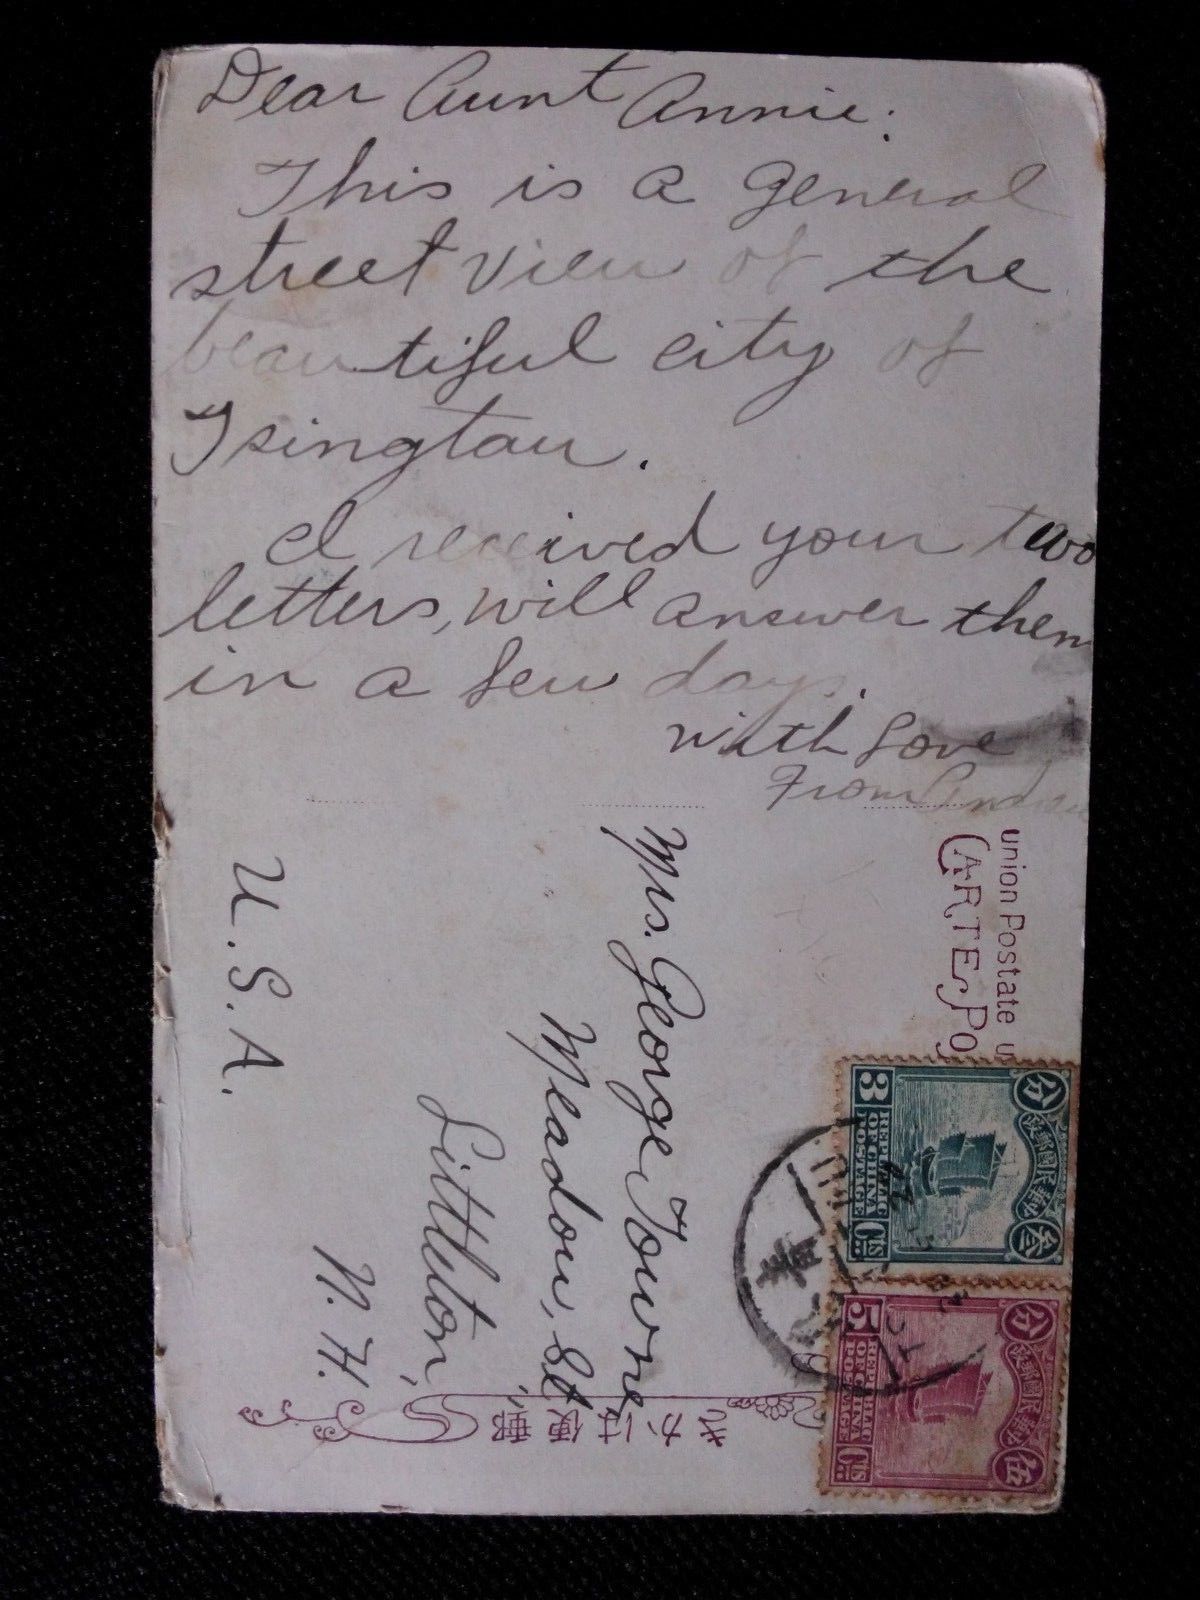 Dear Aunt Annie:
This is a general
street view of the
beautiful city of
Tsingtau.
I received your two
letters, will answer them
in a few days.
with love
From
union Postale u
CARTE PO
Mrs. George Towne,
Meadow, St,
Littleton,
N. H.
U. S. A.
郵便はかき
中華民國郵政
分 叁
3 REPUBLIC OF CHINA POSTAGE 3 CTS
中華民國郵政
分 伍
5 REPUBLIC OF CHINA POSTAGE CTS